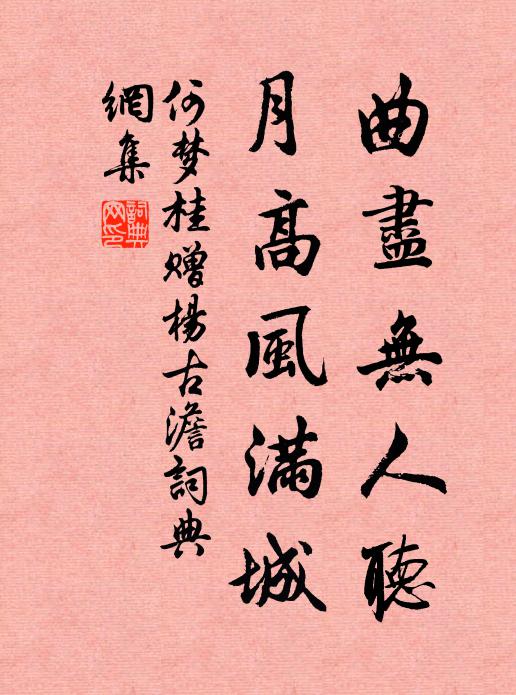 曲盡無人聽
月高風滿城
何梦桂赠楊古澹詞典
網集
詞典
网印